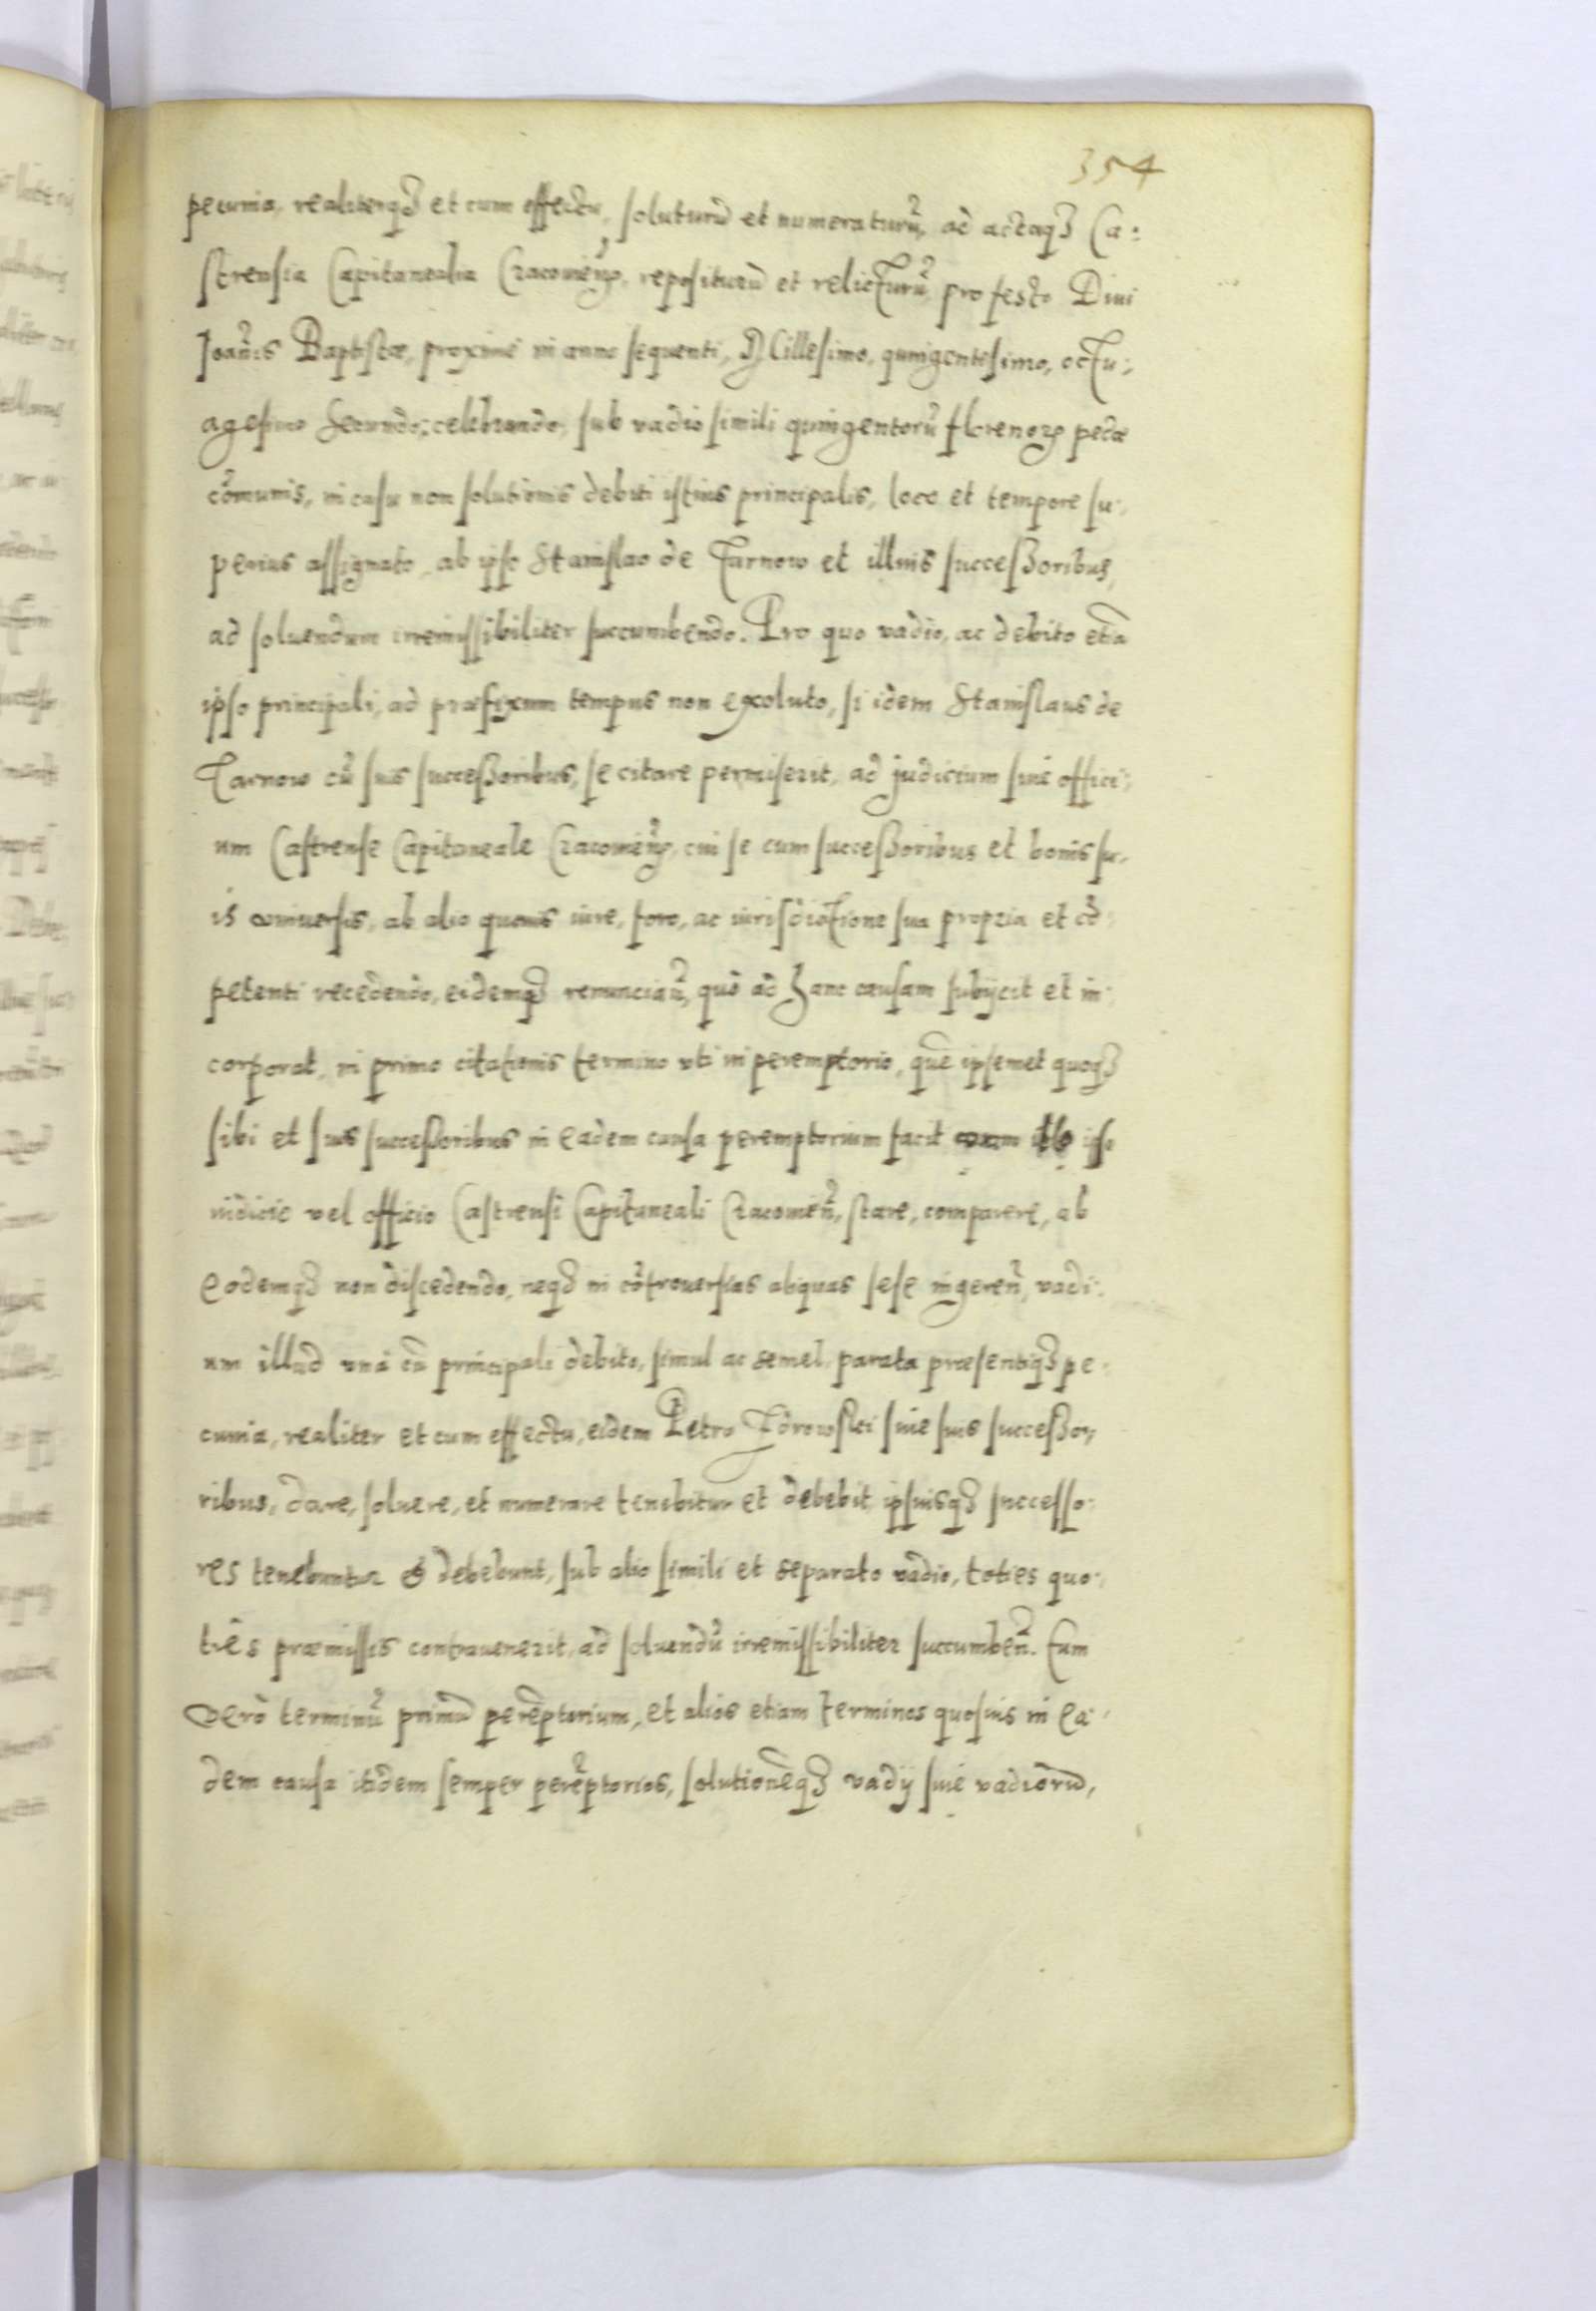 354
pecunia, realiterq₃ et cum effectu, soluturũ et numeraturũ, ad actaq₃ Ca:
strensia Capitanealia Cracouieñ, repositurũ et relicturũ, pro festo Diui
Ioañis Baptistæ, proxime in anno sequenti, Millesimo, quingentesimo, octu:
agesimo Secundo, celebrando, sub vadio simili quingentorũ florenorꝫ pecᵃᵉ
cõmunis, in casu non solutionis debiti istius principalis, loco et tempore su:
perius assignato, ab ipso Stanislao de Tarnow et illius successoribus,
ad soluendum irremissibiliter succumbendo. Pro quo vadio, ac debito etiã
ipso principali, ad præfixum tempus non exoluto, si idem Stanislaus de
Tarnow cũ suis successoribus, se citare permiserit, ad judicium siue offici:
um Castrense Capitaneale Cracouieñ, cui se cum successoribus et bonis su:
is vniuersis, ab alio quouis iure, foro, ac iurisdictione sua propria et cõ:
petenti recedendo, eidemq₃ renunciañ, quò ad hanc causam subijcit et in:
corporat, in primo citationis termino vti in peremptorio, quẽ ipsemet quoq₃
sibi et suis successoribus in eadem causa peremptorium facit coram ipso
iudicio vel officio Castrensi Capitaneali Cracouieñ, stare, comparere, ab
eodemq₃ non discedendo, neq₃ in cõtrouersias aliquas sese ingereñ, vadi:
um illud vnà cũ principali debito, simul ac semel, parata præsentiq₃ pe:
cunia, realiter et cum effectu, eidem Petro Zdrowski siue suis successo:
ribus, dare, soluere, et numerare tenebitur et debebit, ipsiusq₃ successo:
res tenebuntur & debebunt, sub alio simili et separato vadio, toties quo:
ties præmissis contrauenerit, ad soluendũ irremissibiliter succumbeñ. Eum
verò terminũ primũ perẽptorium, et alios etiam terminos quosuis in ea:
dem causa itidem semper perẽptorios, solutionẽq₃ vadij siue vadiorũ,